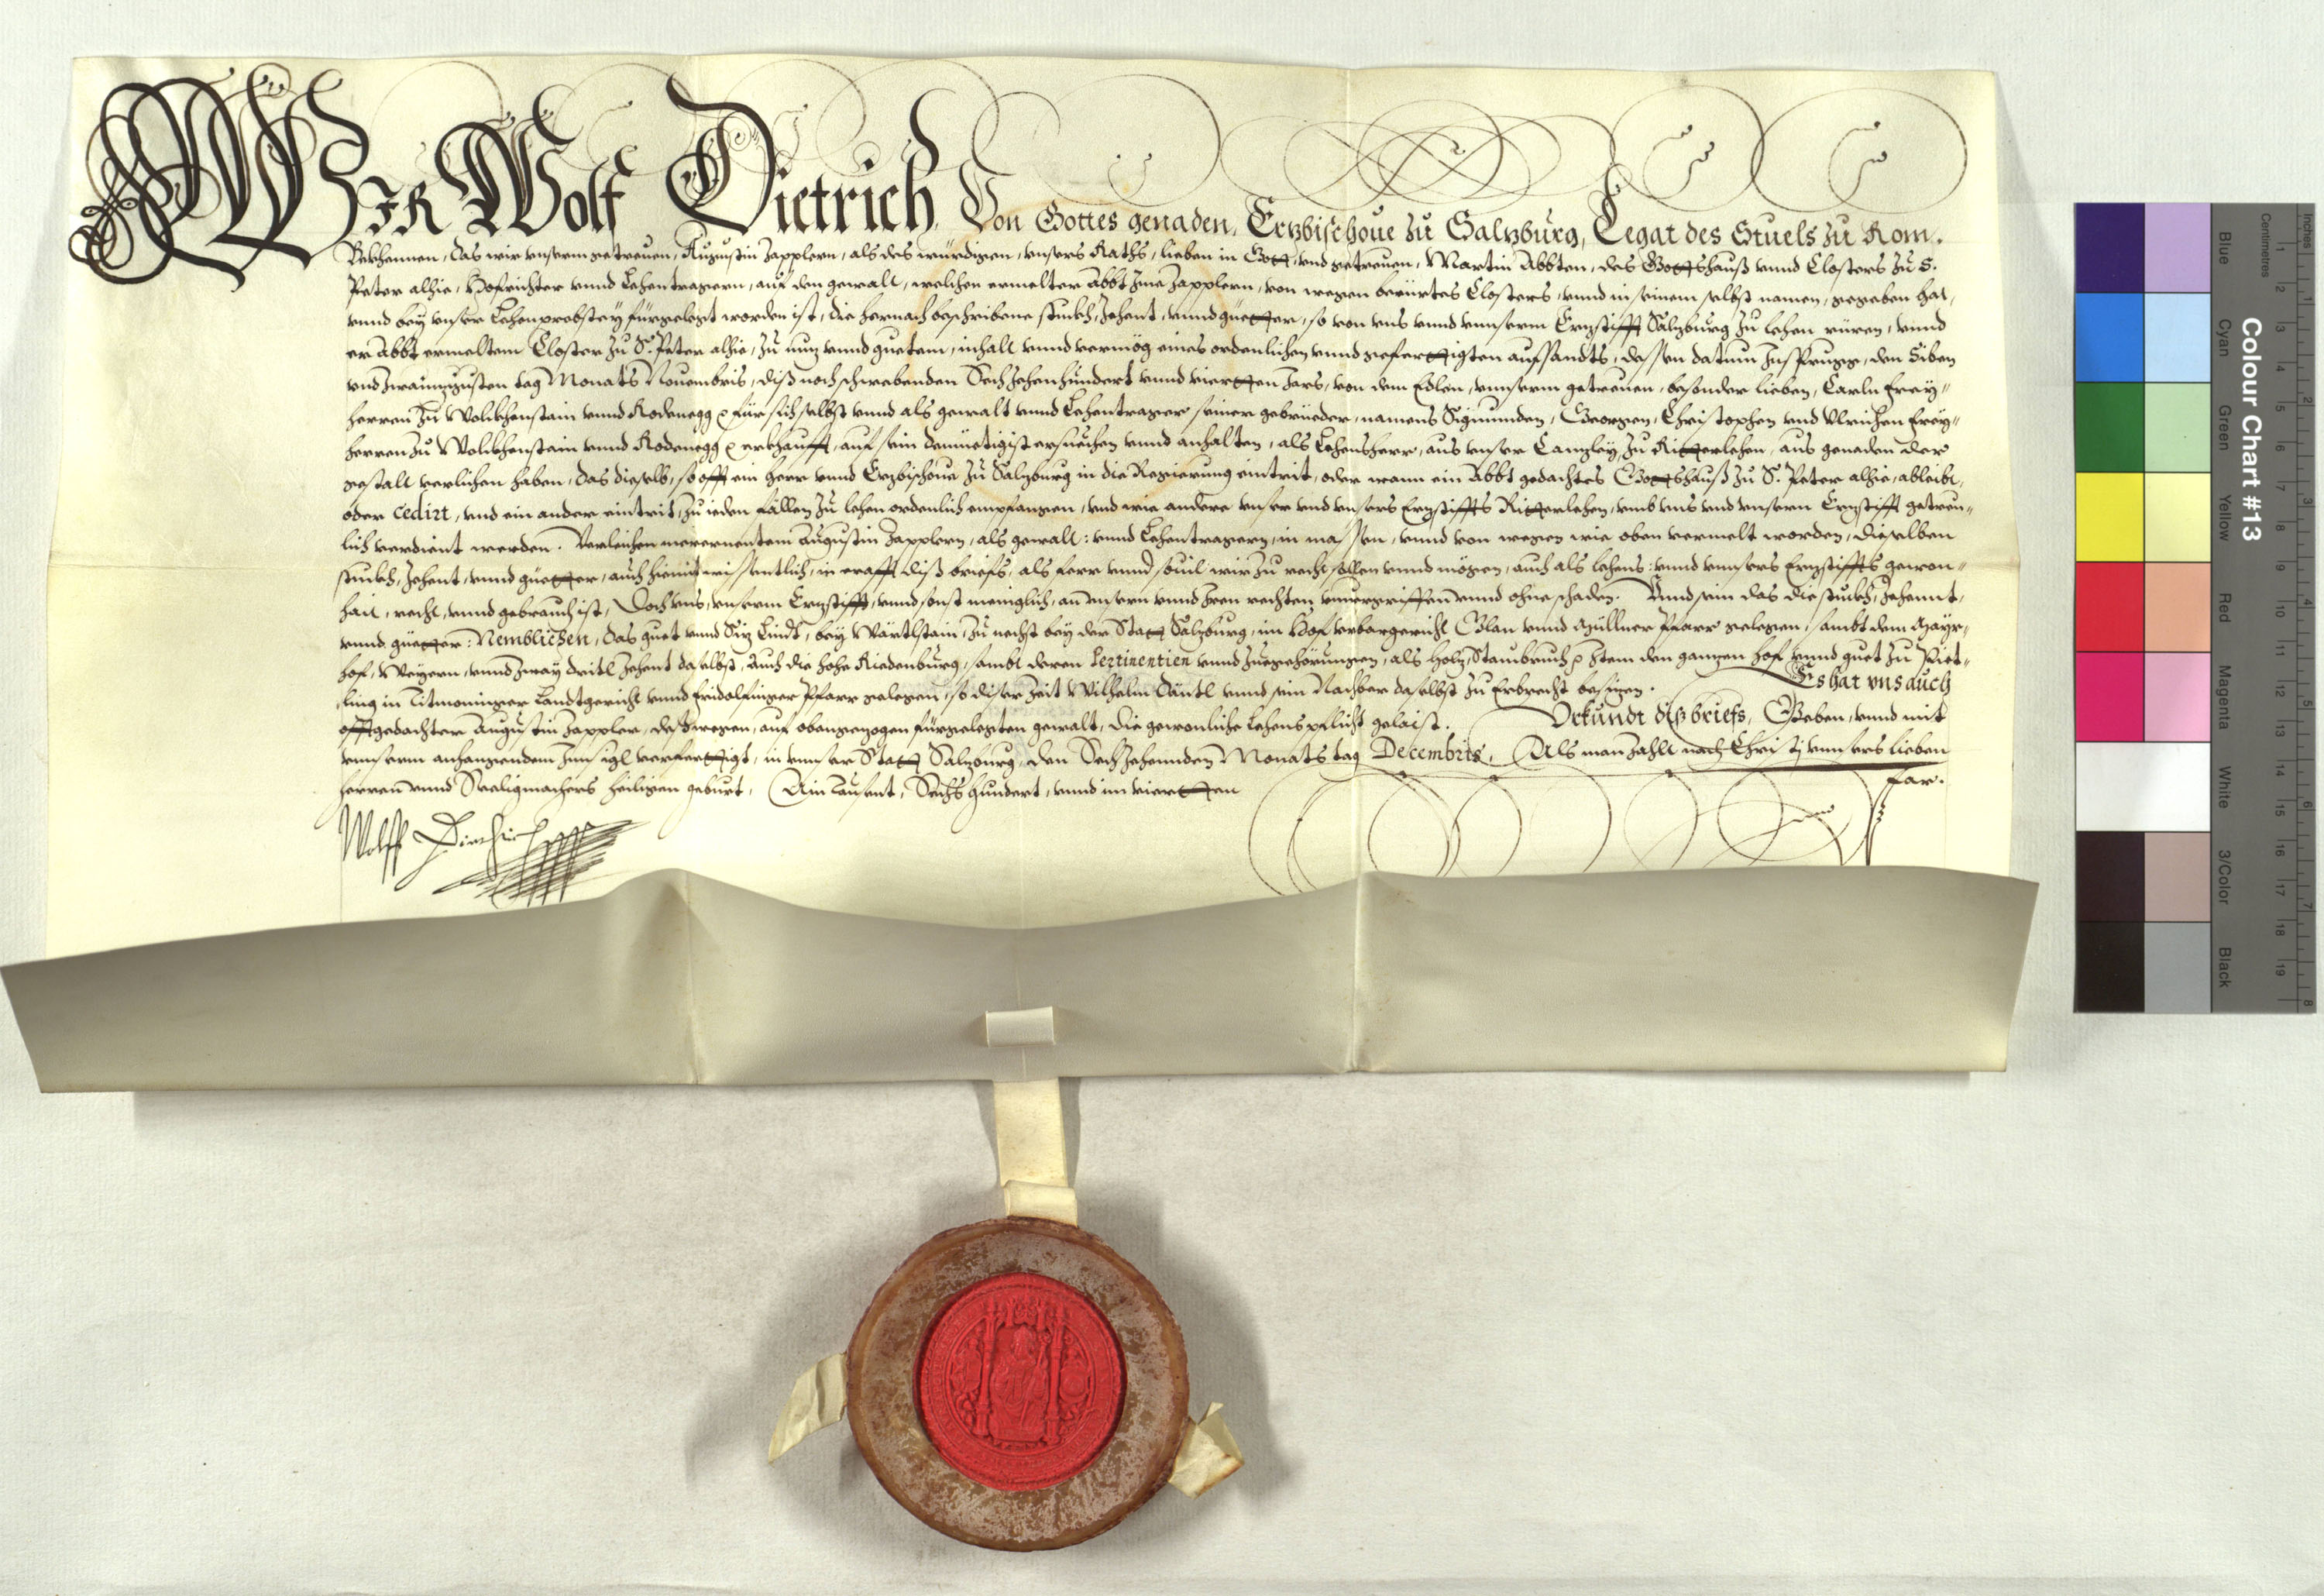 WIR Wolf Dietrich Von Gottes genaden, Erzbischoue zu Salzburg, Legat des Stuels zu Rom.
Bekhennen, das wir vnserm getreuen, Augustin Zapplern, als des würdigen, vnsers Raths, lieben in Gott, vnd getreuen, Martin Abbten, des Gottshauß vnnd Closters zu S.
Peter alhie, Hofrichter vnnd Lehentragern, auf den gewalt, welchen ermelter Abbt Ime Zapplern, von wegen berürtes Closters, vnnd in seinem selbst namen, gegeben hat,
vnnd bey vnser Lehenprobstey fürgelegt worden ist, die hernach beschribene stuckh, Zehent, vnnd güetter, so von vns vnnd vnnserm Erzstifft Salzburg zu lehen rüren, vnnd
er Abbt ermeltem Closter zu S. Peter alhie, zu nuz vnnd guetem, inhalt vnnd vermög eines ordenlichen vnnd gefertigten aufsandts, dessen datum Insprugg, den Siben
vnd zwainzigisten tag Monats Nouembris, diß noch schwebenden Sechzehenhundert vnnd vierten Jars, von dem Edlen, vnnserm getreuen, besonder lieben, Carln Frey-
herren zu Wolckhenstain vnnd Rodenegg für sich selbst vnnd als gewalt vnnd Lehentrager seiner gebrüeder, namens Sigmunden, Georgen, Christophen vnd Vlrichen Frey-
herren zu Wolckhenstain vnnd Rodenegg erkhaufft, auf sein demüetigist ersuechen vnnd anhalten, als Lehensherr, aus vnser Canzley, zu Ritterlehen, aus genaden der
gestalt verlichen haben, das dieselb, so offt ein Herr vnnd Erzbischoue zu Salzburg in die Regierung eintrit, oder wann ein Abbt gedachtes Gottshauß zu S. Peter alhie, ableibt,
oder cedirt, vnd ein ander eintrit, zu ieden fällen zu lehen ordenlich empfangen, vnd wie andere vnser vnd vnsers Erzstiffts Ritterlehen, vmb vns vnd vnsern Erzstifft getreu-
lich verdient werden. Verleichen merernentem Augustin Zapplern, als gewalt: vnnd Lehentragern, in massen, vnnd von wegen wie oben vermelt worden, dieselben
stuckh, Zehent, vnnd güetter, auch hiemit wissentlich, in crafft diß briefs, als ferr vnnd souil wir zu recht sollen vnnd mögen, auch als lehens: vnnd vnnsers Erzstiffts gewon-
hait, recht, vnnd gebrauch ist, Doch vns, vnserm Erzstifft, vnnd sonst meniglich, an vnsern vnnd Iren rechten vnuergriffen vnnd ohne schaden. Vnnd sein das die stuckh, Zehennt,
vnnd güetter: Nemblichen, das guet vnnd Siz Lindt, bey Wartlstain, zu nechst bey der Statt Salzburg, im Hof vrbargericht Glan vnnd Müllner Pfarr gelegen, sambt dem Mayr-
hof, Weyern, vnnd zway dritl Zehent daselbst, Auch die hohe Riedenburg, sambt deren Pertinentien vnnd Zuegehörungen, als Holz, Staubruch Item den ganzen hof vnnd guet zu Piet-
ling in Titmoninger Landtgericht vnnd Fridolfinger Pfarr gelegen, so diser Zeit Wilhelm Däntl vnnd sein Nachber daselbst zu Erbrecht besizen. Es hat vns auch
offtgedachter Augustin Zappler, deßwegen, auf obangezogen fürgelegten gewalt, die gewonliche Lehenspflicht gelaist. Vrkundt diß briefs, Geben, vnnd mit
vnnserm anhangendem Innsigl verfertigt, in vnnser Statt Salzburg, den Sechzehennden Monats tag Decembris, Als man zahlt nach Christi vnnsers lieben
herren vnnd Seeligmachers heiligen geburt, Ain tausent, Sechshundert, vnnd im vierten Jar.
Wolff Dietrich
Colour Chart #13
Blue Cyan Green Yellow Red Magenta White 3/Color Black
Centimetres 1 2 3 4 5 6 7 8 9 10 11 12 13 14 15 16 17 18 19
Inches 1 2 3 4 5 6 7 8